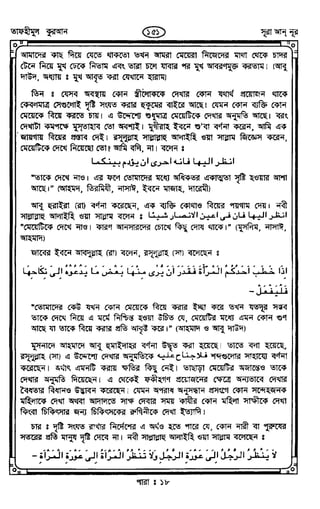 তাফহীমুল কুরআন ১৫১ সূরা আন নূর
আমাদের কাছ দিয়ে যেতে থাকতো তখন আমরা মেয়েরা নিজেদের মাথা থেকে চাদর
টেনে নিয়ে মুখ ঢেকে নিতাম এবং তারা চলে যাবার পর মুখ আবরণমুক্ত করতাম। (আবু
দাউদ, অধ্যায় : মুখ আবৃত করা যেখানে হারাম)
তিন : যেসব অবস্থায় কোন স্ত্রীলোককে দেখার কোন যথার্থ প্রয়োজন থাকে
কেবলমাত্র সেগুলোই দৃষ্টি সংযত করার হুকুমের বাইরে আছে। যেমন কোন ব্যক্তি কোন
মেয়েকে বিয়ে করতে চায়। এ উদ্দেশ্যে শুধুমাত্র মেয়েটিকে দেখার অনুমতি আছে। বরং
দেখাটা কমপক্ষে মুস্তাহাব তো অবশ্যই। মুগীরাহ ইবনে শু'বা বর্ণনা করেন, আমি এক
জায়গায় বিয়ের প্রস্তাব দেই। রসূলুল্লাহ সাল্লাল্লাহু আলাইহি ওয়া সাল্লাম জিজ্ঞেস করেন,
মেয়েটিকে দেখে নিয়েছো তো? আমি বলি, না। বলেন :
انظر اليها فانه احرى ان يؤدم بينكما
"তাকে দেখে নাও। এর ফলে তোমাদের মধ্যে অধিকতর একাত্মতা সৃষ্টি হওয়ার আশা
আছে।" (আহমাদ, তিরমিযী, নাসাঈ, ইবনে মাজাহ, দারেমী)
আবু হুরাইরা (রা) বর্ণনা করেছেন, এক ব্যক্তি কোথাও বিয়ের পয়গাম দেয়। নবী
সাল্লাল্লাহু আলাইহি ওয়া সাল্লাম বলেন : انظر اليها فان فى اعين الانصار شيئا
"মেয়েটিকে দেখে নাও। কারণ আনসারদের চোখে কিছু দোষ থাকে।" (মুসলিম, নাসাঈ,
আহমাদ)
জাবের ইবনে আবদুল্লাহ (রা) বলেন, রসূলুল্লাহ (সা) বলেছেন :
اذا خطب احدكم المرأة فقدر ان يرى منها بعض ما يدعوه الى نكاحها
فليفعل -
"তোমাদের কেউ যখন কোন মেয়েকে বিয়ে করার ইচ্ছা করে তখন যতদূর সম্ভব
তাকে দেখে নিয়ে এ মর্মে নিশ্চিন্ত হওয়া উচিত যে, মেয়েটির মধ্যে এমন কোন গুণ
আছে যা তাকে বিয়ে করার প্রতি আকৃষ্ট করে।" (আহমাদ ও আবু দাউদ)
মুসনাদে আহমাদে আবু হুমাইদাহর বর্ণনা উদ্ধৃত করা হয়েছে। তাতে বলা হয়েছে,
রসূলুল্লাহ (সা) এ উদ্দেশ্যে দেখার অনুমতিকে فلا جناح عليه শব্দগুলোর সাহায্যে বর্ণনা
মহিলাকে দেখা অথবা আদালতে সাক্ষ দেবার সময় কাযীর কোন মহিলা সাক্ষীকে দেখা
কিংবা চিকিৎসার জন্য চিকিৎসকের রুগিনীকে দেখা ইত্যাদি।
চার : দৃষ্টি সংযত রাখার নির্দেশের এ অর্থও হতে পারে যে, কোন নারী বা পুরুষের
সতরের প্রতি মানুষ দৃষ্টি দেবে না। নবী সাল্লাল্লাহু আলাইহি ওয়া সাল্লাম বলেছেন :
لا ينظر الرجل الى عورة الرجل ولا تنظر المرأة الى عورة المرأة -
পারা : ১৮